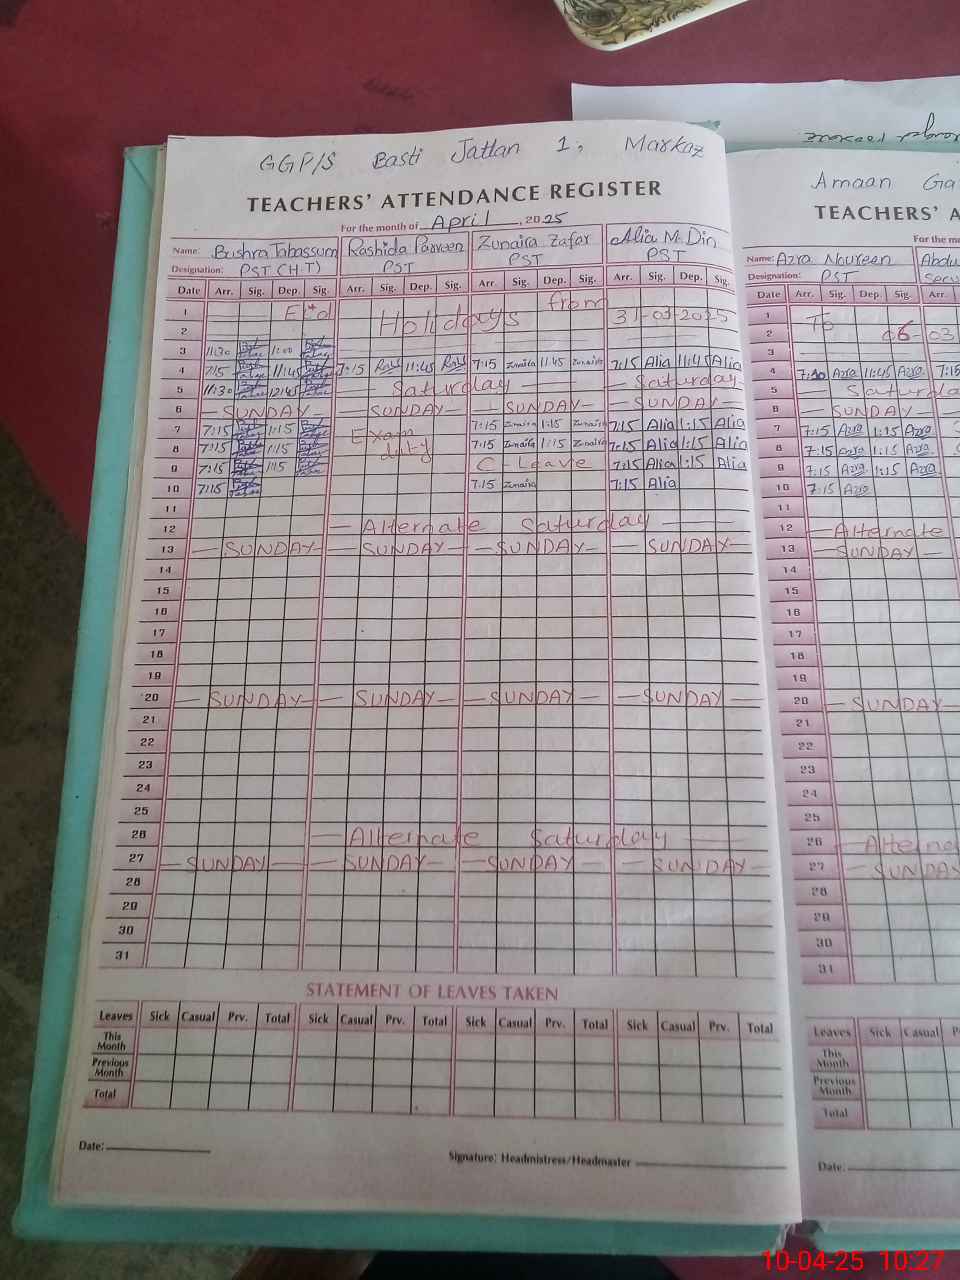 GGP/S Basti Jattan 1, Markaz
TEACHERS' ATTENDANCE REGISTER
For the month of April, 2025
Name: Bushra Tabassum Rashida Parveen Zunaira Zafar Alia M. Din
Designation: PST (H.T) PST PST PST
Date Arr. Sig. Dep. Sig. Arr. Sig. Dep. Sig. Arr. Sig. Dep. Sig. Arr. Sig. Dep. Sig.
1 Holidays from 31-03-2025
2
3 11:30 1:00
4 7:15 11:45 7:15 11:45 7:15 Zunaira 11:45 Zunaira 7:15 Alia 11:45 Alia
5 11:30 12:45 Saturday Saturday
6 SUNDAY SUNDAY SUNDAY SUNDAY
7 7:15 1:15 Exam 7:15 Zunaira 1:15 Zunaira 7:15 Alia 1:15 Alia
8 7:15 1:15 duty 7:15 Zunaira 1:15 Zunaira 7:15 Alia 1:15 Alia
9 7:15 1:15 C-Leave 7:15 Alia 1:15 Alia
10 7:15 7:15 Zunaira 7:15 Alia
11
12 Alternate Saturday
13 SUNDAY SUNDAY SUNDAY SUNDAY
14
15
16
17
18
19
20 SUNDAY SUNDAY SUNDAY SUNDAY
21
22
23
24
25
26 Alternate Saturday
27 SUNDAY SUNDAY SUNDAY SUNDAY
28
29
30
31
STATEMENT OF LEAVES TAKEN
Leaves Sick Casual Prv. Total Sick Casual Prv. Total Sick Casual Prv. Total Sick Casual Prv. Total
This Month
Previous Month
Total
Date:
Signature: Headmistress/Headmaster
Amaan
TEACHERS' A
For the m
Name: Azra Noureen Abdu
Designation: PST
Date Arr. Sig. Dep. Sig. Arr.
1 To
2 06-03
3
4 7:30 Azra 11:45 Azra 7:15
5 Saturda
6 SUNDAY
7 7:15 Azra 1:15 Azra
8 7:15 Azra 1:15 Azra
9 7:15 Azra 1:15 Azra
10 7:15 Azra
11
12 Alternate
13 SUNDAY
14
15
16
17
18
19
20 SUNDAY
21
22
23
24
25
26 Alterna
27 SUNDAY
28
29
30
31
Leaves Sick Casual P
This Month
Previous Month
Total
Date:
10-04-25 10:27